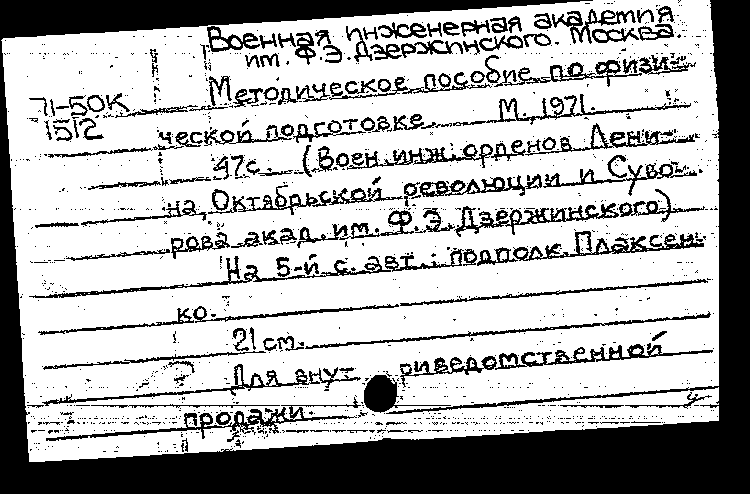 Военная инженерная академия
им. Ф.Э.Дзержинского. Москва.
71-50К
Методическое пособие по физи-
1512
ческой подготовке. М., 1971.
47с. (Воен.инж.орденов Лени-
на, Октябрьской революции и Суво-
рова акад. им. Ф.Э.Дзержинского)
На 5-й с. авт.: подполк. Плаксен-
ко.
21 см.
Для внут риведомственной
продажи.